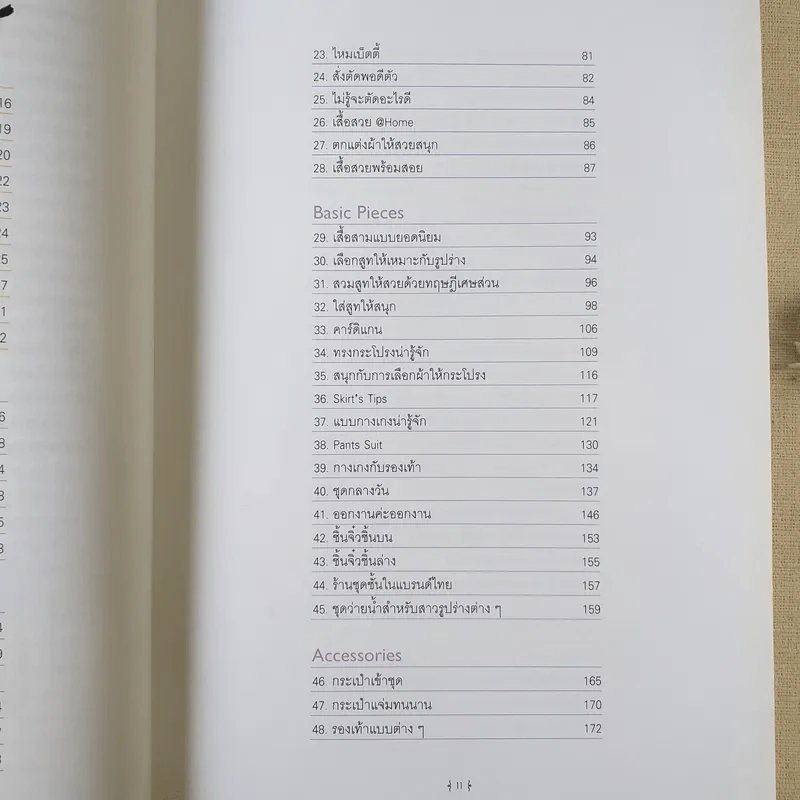 16
19
20
22
23
24
25
23. ไหมเบ็ตตี้ 81
24. สั่งตัดพอดีตัว 82
25. ไม่รู้จะตัดอะไรดี 84
26. เสื้อสวย @Home 85
27. ตกแต่งผ้าให้สวยสนุก 86
28. เสื้อสวยพร้อมสอย 87
Basic Pieces
29. เสื้อสามแบบยอดนิยม 93
30. เลือกสูทให้เหมาะกับรูปร่าง 94
31. สวมสูทให้สวยด้วยทฤษฎีเศษส่วน 96
32. ใส่สูทให้สนุก 98
33. คาร์ดิแกน 106
34. ทรงกระโปรงน่ารู้จัก 109
35. สนุกกับการเลือกผ้าให้กระโปรง 116
36. Skirt's Tips 117
37. แบบกางเกงน่ารู้จัก 121
38. Pants Suit 130
39. กางเกงกับรองเท้า 134
40. ชุดกลางวัน 137
41. ออกงานค่ะออกงาน 146
42. ชิ้นจิ๋วชิ้นบน 153
43. ชิ้นจิ๋วชิ้นล่าง 155
44. ร้านชุดชั้นในแบรนด์ไทย 157
45. ชุดว่ายน้ำสำหรับสาวรูปร่างต่าง ๆ 159
Accessories
46. กระเป๋าเข้าชุด 165
47. กระเป๋าแจ่มทนนาน 170
48. รองเท้าแบบต่าง ๆ 172
11